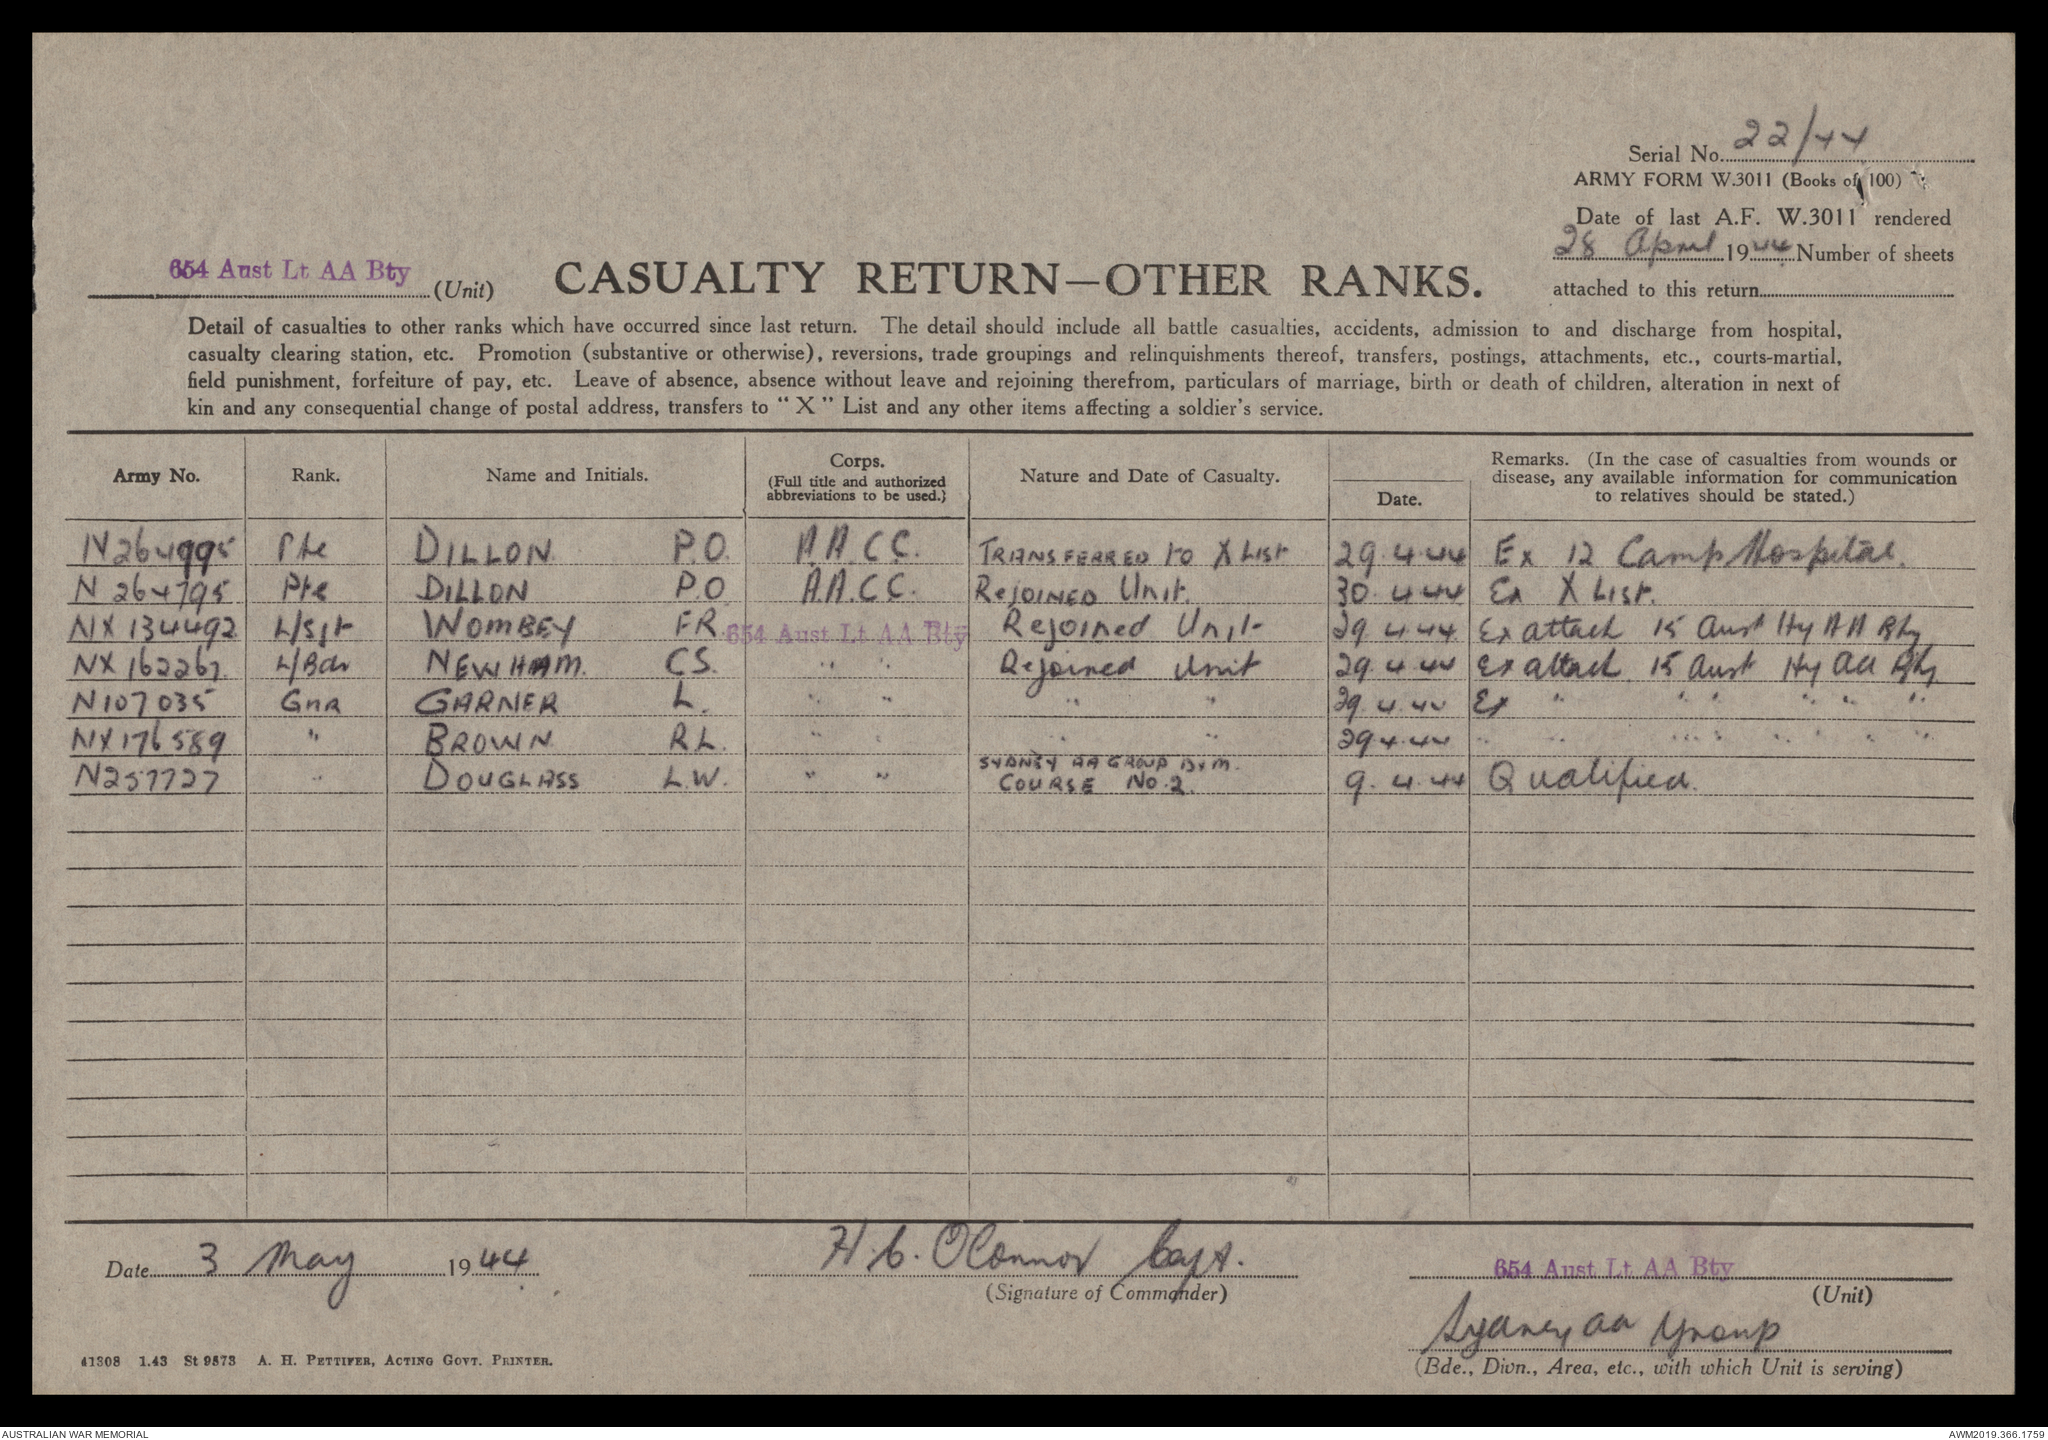 Serial No. 22/44
ARMY FORM W.3011 (Books of 100)
Date of last A.F. W.3011 rendered
28 April 1944 Number of sheets
attached to this return
654 Aust Lt AA Bty (Unit)
CASUALTY RETURN—OTHER RANKS.
Detail of casualties to other ranks which have occurred since last return. The detail should include all battle casualties, accidents, admission to and discharge from hospital,
casualty clearing station, etc. Promotion (substantive or otherwise), reversions, trade groupings and relinquishments thereof, transfers, postings, attachments, etc., courts-martial,
field punishment, forfeiture of pay, etc. Leave of absence, absence without leave and rejoining therefrom, particulars of marriage, birth or death of children, alteration in next of
kin and any consequential change of postal address, transfers to "X" List and any other items affecting a soldier's service.
Army No. Rank. Name and Initials. Corps. (Full title and authorized abbreviations to be used.) Nature and Date of Casualty. Date. Remarks. (In the case of casualties from wounds or disease, any available information for communication to relatives should be stated.)
N264995 Pte DILLON P.O. A.A.C.C. TRANSFERRED to X LIST 29.4.44 Ex 12 Camp Hospital.
N264795 Pte DILLON P.O A.A.C.C. REJOINED Unit. 30.4.44 Ex X LIST.
NX134492 L/Sjt WOMBEY FR 654 Aust Lt AA Bty Rejoined Unit 29.4.44 Ex attach 15 Aust Hy AA Bty
NX162267 L/Bdr NEWHAM. CS. " " Rejoined Unit 29.4.44 Ex attach 15 Aust Hy AA Bty
N107035 Gnr GARNER L. " " " " 29.4.44 Ex " " " " " "
NX176589 " BROWN R.L. " " " " 29.4.44 " " " " " " " "
N257727 " DOUGLASS L.W. " " SYDNEY AA GROUP COURSE No.2. 9.4.44 Qualified.
Date 3 May 1944
H.C. O'Connor Capt.
(Signature of Commander)
654 Aust Lt AA Bty
(Unit)
Sydney AA Group
(Bde., Divn., Area, etc., with which Unit is serving)
41308 1.43 St 9573 A. H. PETTIFER, ACTING GOVT. PRINTER.
AUSTRALIAN WAR MEMORIAL
AWM2019.366.1759